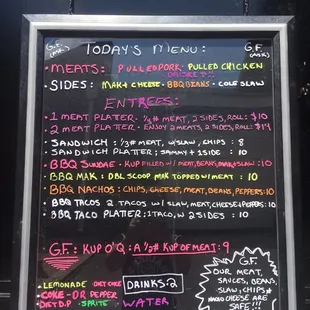 G.F. (ASK)
TODAY'S MENU:
G.F. (ASK)
MEATS: PULLED PORK · PULLED CHICKEN
BRISKET
SIDES: MAK + CHEESE · BBQ BEANS · COLE SLAW
ENTREES:
1 MEAT PLATTER: MEAT, 2 SIDES, ROLL: $10
2 MEAT PLATTER: ENJOY 2 MEATS, 2 SIDES, ROLL: $14
SANDWICH: 1/3# MEAT, W/SLAW, CHIPS : 8
SANDWICH PLATTER: SAMMY + 1 SIDE : 10
BBQ SUNDAE: KUP FILLED W/ MEAT, BEANS, MAK + SLAW : 10
BBQ MAK: DBL SCOOP MAK TOPPED W/ MEAT : 10
BBQ NACHOS: CHIPS, CHEESE, MEAT, BEANS, PEPPERS: 10
BBQ TACOS 2 TACOS W/ SLAW, MEAT, CHEESE + PEPPERS: 10
BBQ TACO PLATTER: 1 TACO, W 2 SIDES : 10
G.F.: KUP O'Q: A 1/2# KUP OF MEAT: 9
LEMONADE DIET COKE
COKE - DR PEPPER
DIET D.P · SPRITE · WATER
DRINKS: 2
G.F.
OUR MEAT,
SAUCES, BEANS,
SLAW, CHIPS +
NACHO CHEESE ARE
SAFE!!!